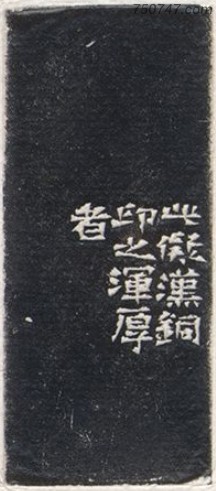 750747.com
此儗漢銅
印之渾厚
者